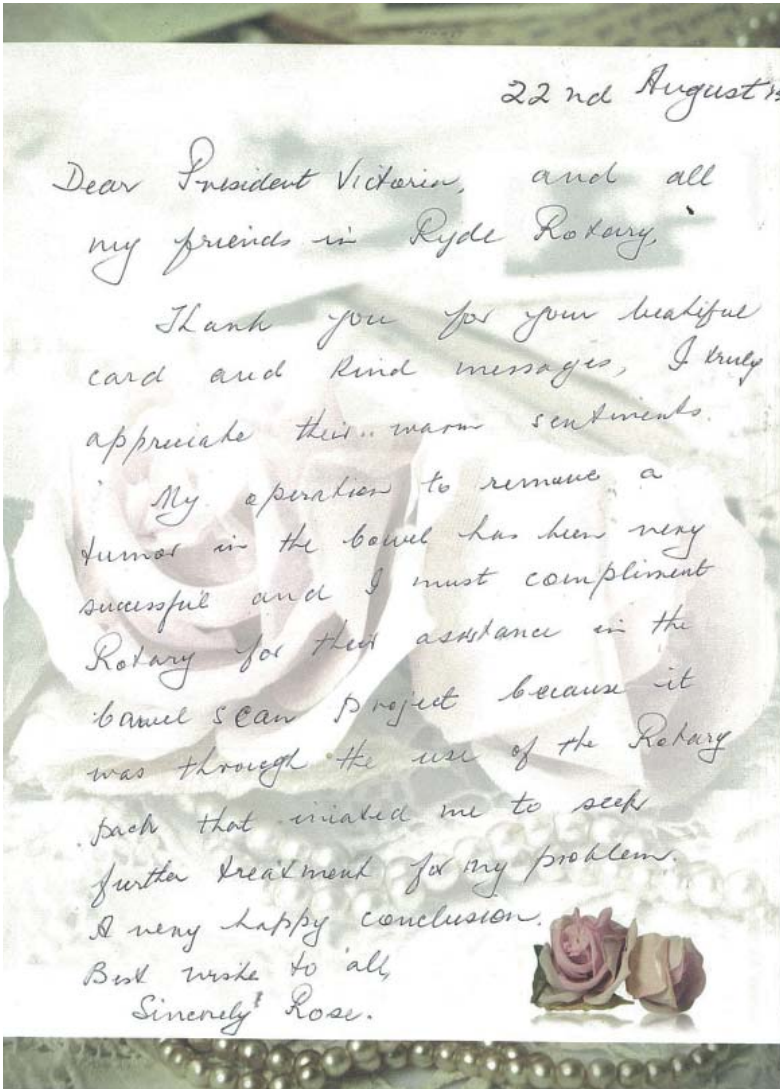 22nd August
Dear President Victoria, and all
my friends in Ryde Rotary,
Thank you for your beatiful
card and kind messages, I truly
appreciate their warm sentiments.
My operation to remove a
tumor in the bowel has been very
successful and I must compliment
Rotary for their assistance in the
bowel scan project because it
was through the use of the Rotary
pack that iniated me to seek
further treatment for my problem.
A very happy conclusion.
Best wishe to all,
Sincerely Rose.